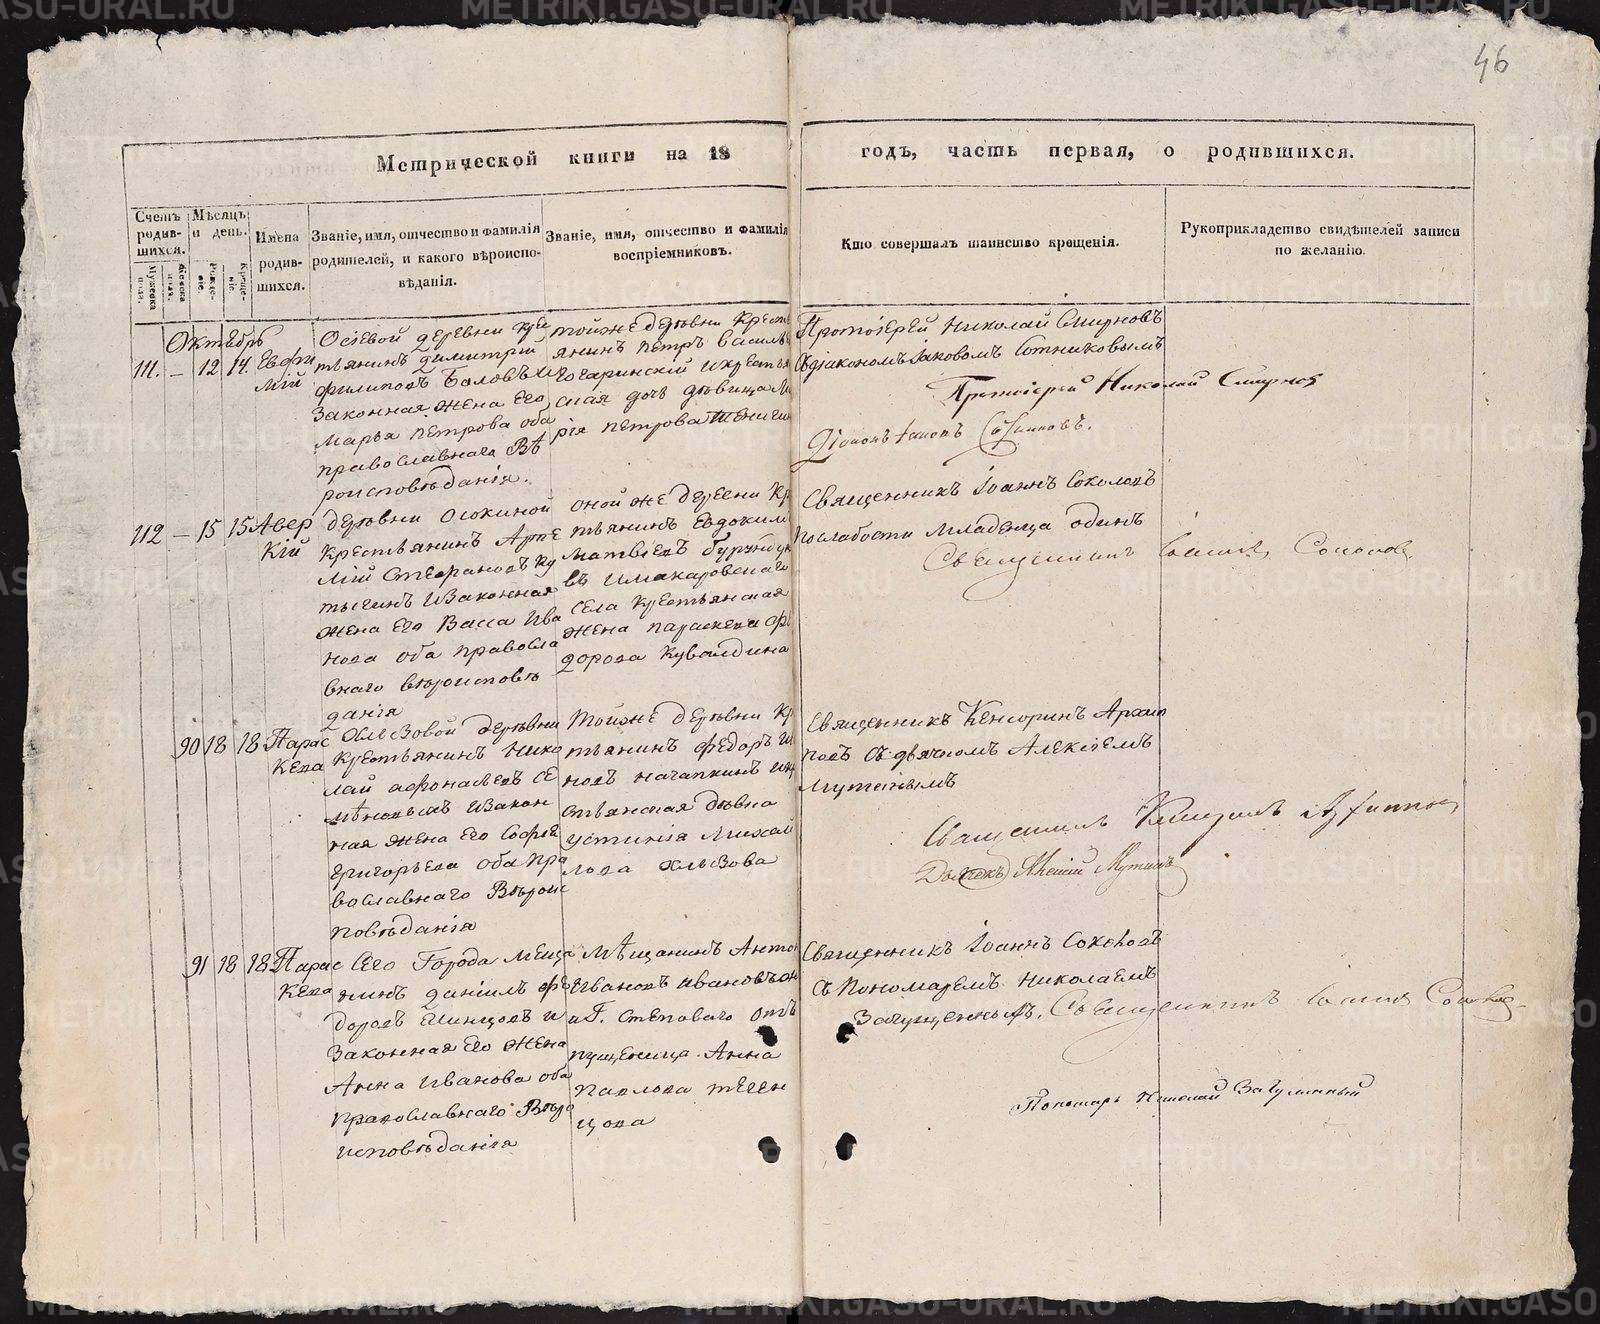 46
Метрической книги на 18 годъ, часть первая, о родившихся.
Счетъ родив-шихся.
Мужеска пола.
Женска пола.
Мѣсяцъ и день.
Рожде-нія.
Креще-нія.
Имена родив-шихся.
Званіе, имя, отчество и фамилія
родителей, и какого вѣроиспо-
вѣданія.
Званіе, имя, отчество и фамилія
воспріемниковъ.
Кто совершалъ таинство крещенія.
Рукоприкладство свидѣтелей записи
по желанію.
Октябрь
111. — 12 14. Евфи
мій
Осіевой деревни кре
стьянинъ Димитрій
Филиповъ Баловъ и
Законная жена его
Марья Петрова оба
православнаго Вѣ
роисповѣданія.
тойже деревни Крест
янинъ Петръ Василь
Погаринскій и крестья
ская дочь дѣвица Ма
рія Петрова
Протоіерей Николай Смирновъ
съ діакономъ Іаковомъ Сотниковымъ
Протоіерей Николай Смирновъ
Діаконъ Іаковъ Сотниковъ.
112 — 15 15 Авер
кій
деревни Осокиной
Крестьянинъ Арте
мій Стефановъ Ку
тыгинъ и Законная
жена его Васса Ива
нова оба правосла
внаго вѣроисповѣ
данія
оной же деревни Кр
стьянинъ Евдокимъ
Матвѣевъ
въ и Макаровскаго
Села Крестьянская
жена Параскева Фе
дорова Кувалдина
Священникъ Іоаннъ Соколовъ
по слабости младенца одинъ
Священникъ Іоаннъ Соколовъ
90 18 18 Парас
кева
Хлызовой деревни
Крестьянинъ Нико
лай Афонасьевъ Се
мѣновыхъ и закон
ная жена его Софья
Григорьева оба пра
вославнаго Вѣроис
повѣданія
Тойже деревни Кр
стьянинъ Федоръ И
новъ Начапкинъ и кр
стьянская дѣвка
Устинія Михай
лова Хлызова
Священникъ Кенсоринъ Архип
повъ съ дьячкомъ Алексіемъ
Мутинымъ
Священникъ Кенсоринъ Архипповъ
Дьячекъ Алексій Мутинъ
91 18 18 Парас
кева
Сего Города Меща
нинъ Даніилъ Фе
доровъ Шинцовъ и
Законная его жена
Анна Иванова оба
православнаго Вѣро
исповѣданія
Мѣщанинъ Анто
Ивановъ Ивановъ
и Г. Стеноваго отъ
пущеница Анна
Павлова Теген
цова
Священникъ Іоаннъ Соколовъ
съ Пономаремъ Николаемъ
Загуменнымъ. Священникъ Іоаннъ Соколовъ
Пономарь Николай Загуменный
METRIKI.GASO-URAL.RU